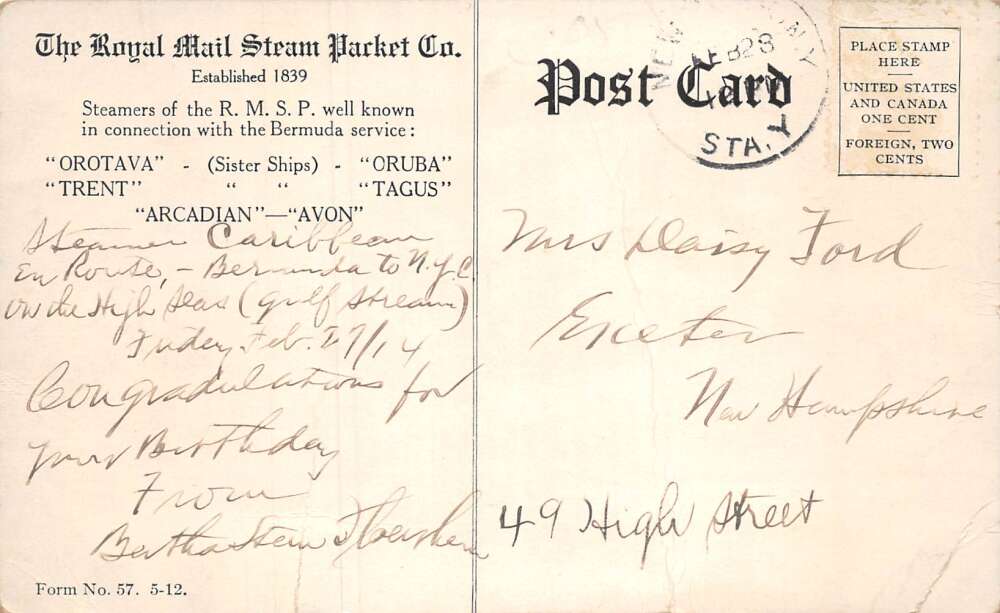 The Royal Mail Steam Packet Co.
Established 1839
Steamers of the R. M. S. P. well known
in connection with the Bermuda service:
"OROTAVA" - (Sister Ships) - "ORUBA"
"TRENT" " " "TAGUS"
"ARCADIAN"—"AVON"
Steamer Caribbean
En Route, - Bermuda to N.Y.C.
On the High Seas (Gulf Stream)
Friday Feb. 27/14
Congradulations for
your Birthday
From
Bertha Stein
Form No. 57. 5-12.
Post Card
NEW N.Y.
FEB 28
STA. Y
PLACE STAMP
HERE
UNITED STATES
AND CANADA
ONE CENT
FOREIGN, TWO
CENTS
Mrs Daisy Ford
Exeter
New Hampshire
49 High Street